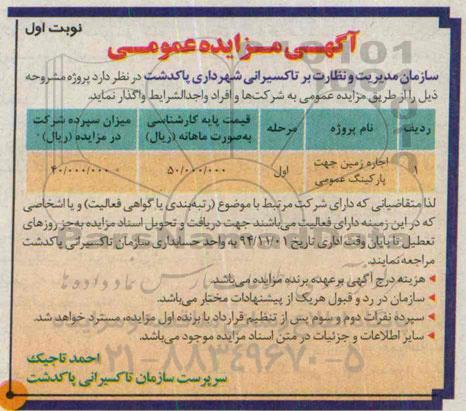 نوبت اول
آگهی مزایده عمومی
سازمان مدیریت و نظارت بر تاکسیرانی شهرداری پاکدشت در نظر دارد پروژه مشروحه
ذیل را از طریق مزایده عمومی به شرکت‌ها و افراد واجدالشرایط واگذار نماید.
ردیف نام پروژه مرحله قیمت پایه کارشناسی به‌صورت ماهانه (ریال) میزان سپرده شرکت در مزایده (ریال)
۱ اجاره زمین جهت پارکینگ عمومی اول ۵۰/۰۰۰/۰۰۰ ۴۰/۰۰۰/۰۰۰
لذا متقاضیانی که دارای شرکت مرتبط با موضوع (رتبه‌بندی یا گواهی فعالیت) و یا اشخاصی
که در این زمینه دارای فعالیت می‌باشند جهت دریافت و تحویل اسناد مزایده به‌جز روزهای
تعطیل تا پایان وقت اداری تاریخ ۹۴/۱۱/۰۱ به واحد حسابداری سازمان تاکسیرانی پاکدشت
مراجعه نمایند.
هزینه درج آگهی برعهده برنده مزایده می‌باشد.
سازمان در رد و قبول هریک از پیشنهادات مختار می‌باشد.
سپرده نفرات دوم و سوم پس از تنظیم قرارداد با برنده اول مزایده، مسترد خواهد شد.
سایر اطلاعات و جزئیات در متن اسناد مزایده موجود می‌باشد.
۰۲۱-۸۸۳۴۹۶۷۰-۵
احمد تاجیک
سرپرست سازمان تاکسیرانی پاکدشت